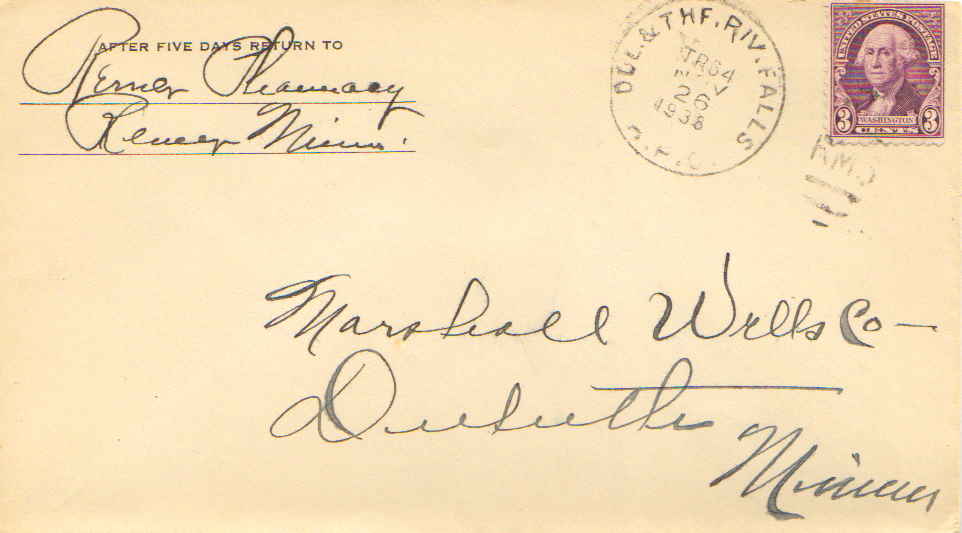 AFTER FIVE DAYS RETURN TO
Remer Pharmacy
Remer Minn.
DUL. & THF. RIV. FALLS
TR64
NOV
26
1938
R.P.O.
UNITED STATES POSTAGE
3 WASHINGTON 3
RMS
Marshall Wells Co —
Duluth
Minn